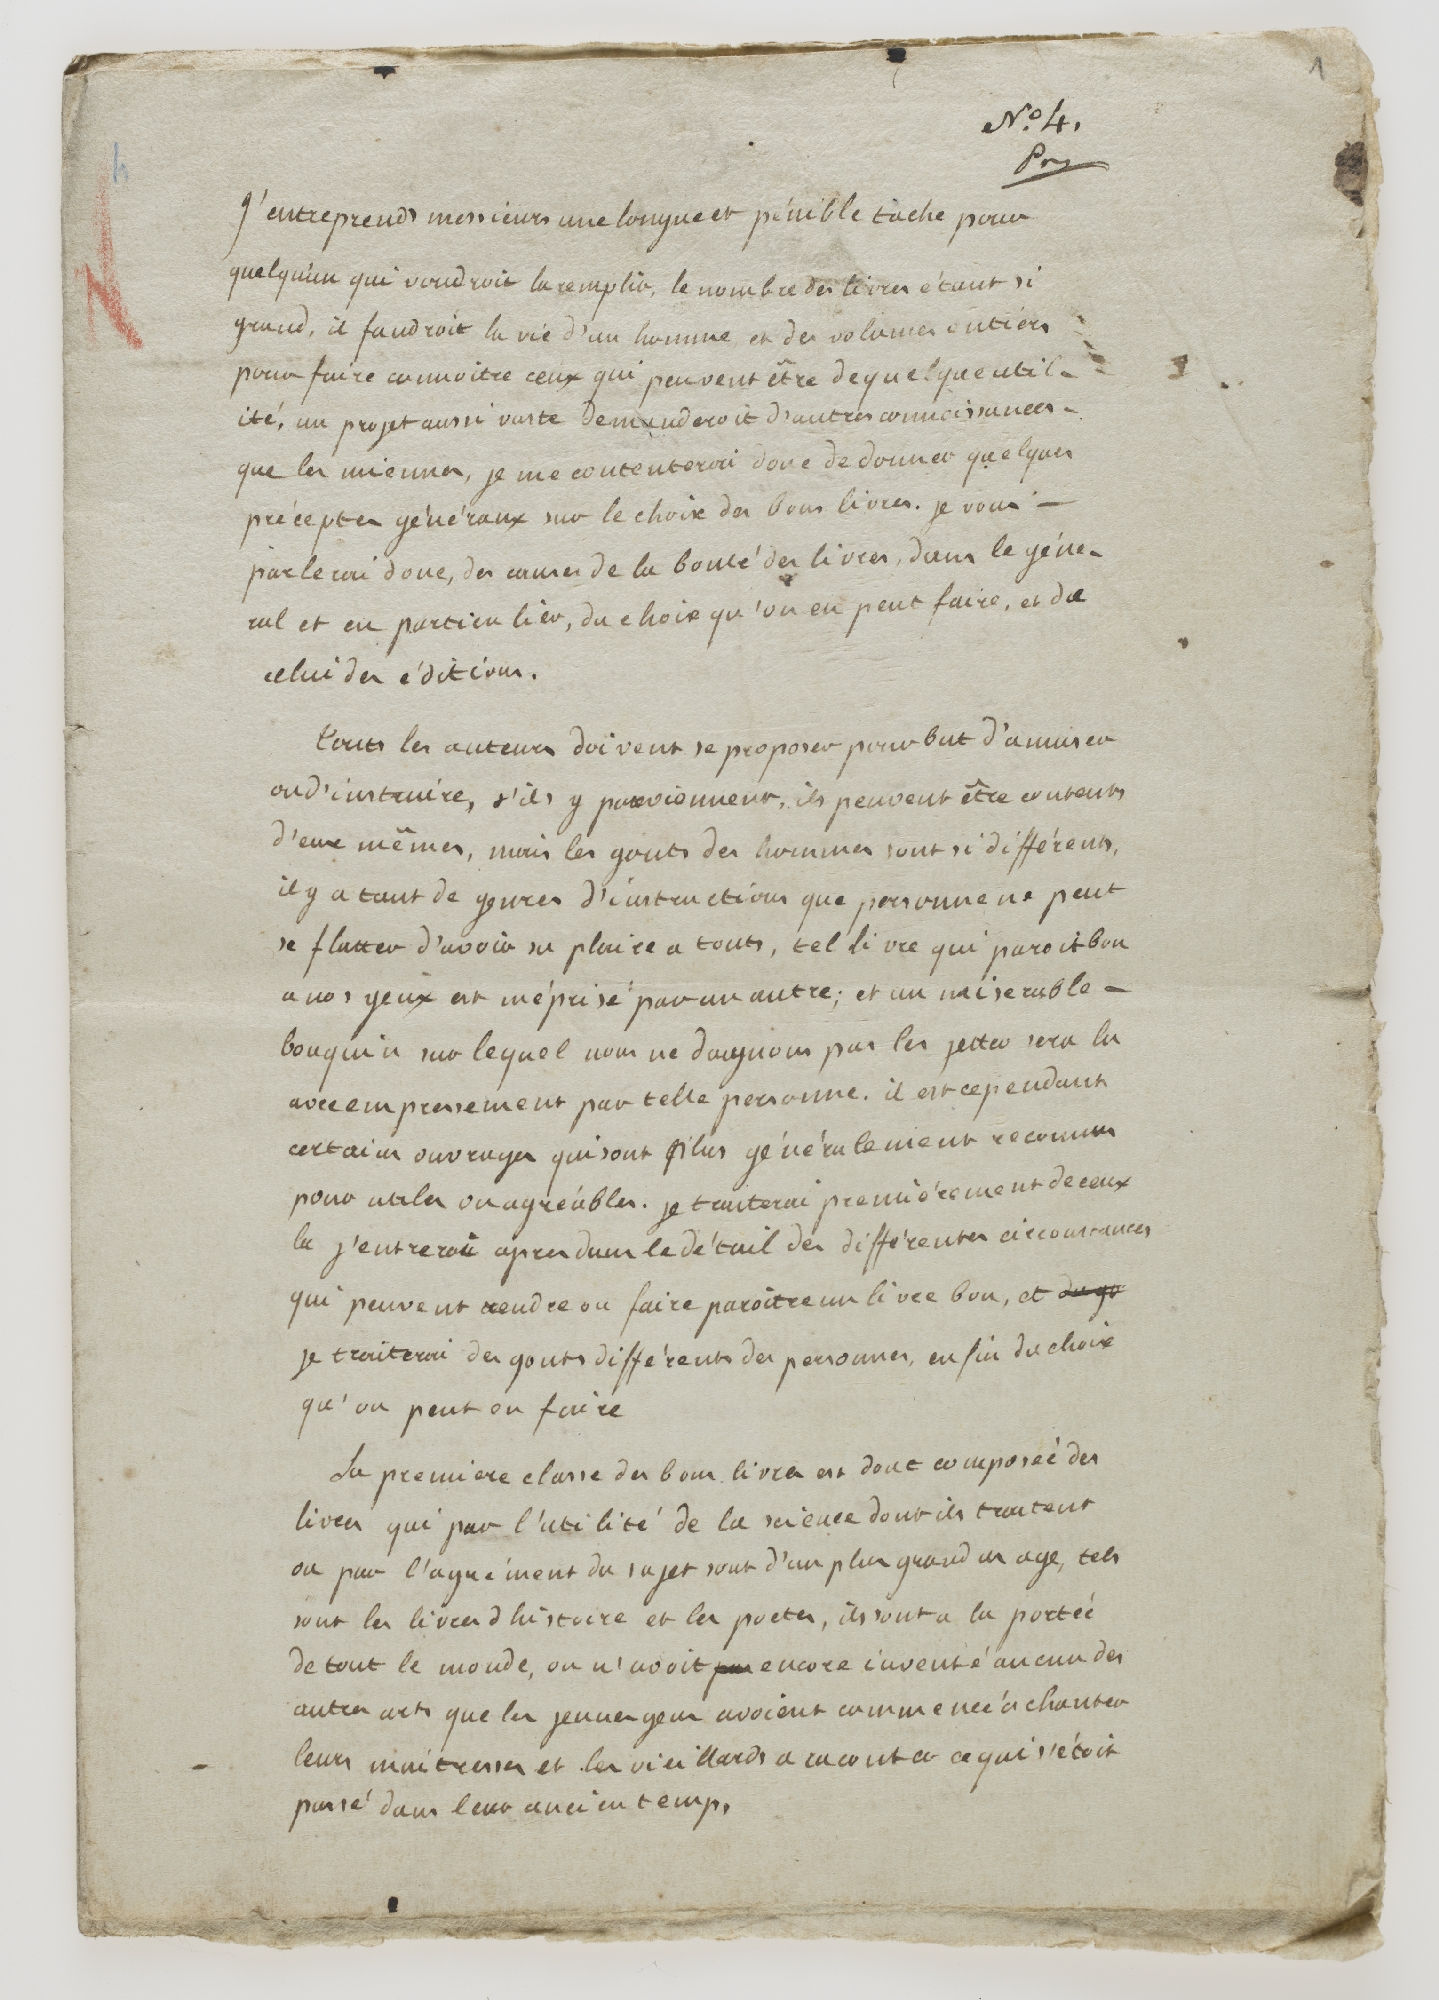 1
N.º 4.
J'entreprends messieurs une longue et pénible tâche pour
quelqu'un qui voudroit la remplir, le nombre des livres étant si
grand, il faudroit la vie d'un homme et des volumes entiers
pour faire connoitre ceux qui peuvent être de quelque util-
ité, un projet aussi vaste demanderoit d'autres connoissances -
que les miennes, je me contenterai donc de donner quelques
préceptes généraux sur le choix des bons livres. je vous -
parlerai donc, des causes de la bonté des livres, dans le géne-
ral et en particulier, du choix qu'on en peut faire, et de
celui des éditions.
touts les auteurs doivent se proposer pour but d'amuser
ou d'instruire, s'ils y parviennent, ils peuvent être contents
d'eux mêmes, mais les gouts des hommes sont si différents,
il y a tant de genres d'instructions que personne ne peut
se flatter d'avoir su plaire a touts, tel livre qui paroit bon
a nos yeux est méprisé par un autre; et un miserable -
bouquin sur lequel nous ne daignons pas les jetter sera lu
avec empressement par telle personne. il est cependant
certains ouvrages qui sont plus généralement reconnus
pour utiles ou agréables. je traiterai premiérement de ceux
la j'entrerai apres dans le détail des différentes circonstances
qui peuvent rendre ou faire paroître un livre bon, et du go
je traiterai des gouts différents des personnes, enfin du choix
qu'on peut en faire
La premiere classe des bons livres est donc composéé des
livres qui par l'utilité de la science dont ils traitent
ou par l'agrément du sujet sont d'un plus grand usage, tels
sont les livres d'histoire et les poetes, ils sont a la portéé
de tout le monde, on n'avoit pas encore inventé aucun des
autres arts que les jeunes gens avoient commencé a chanter
leurs maitresses et les vieillards a raconter ce qui s'étoit
passé dans leur ancien temps